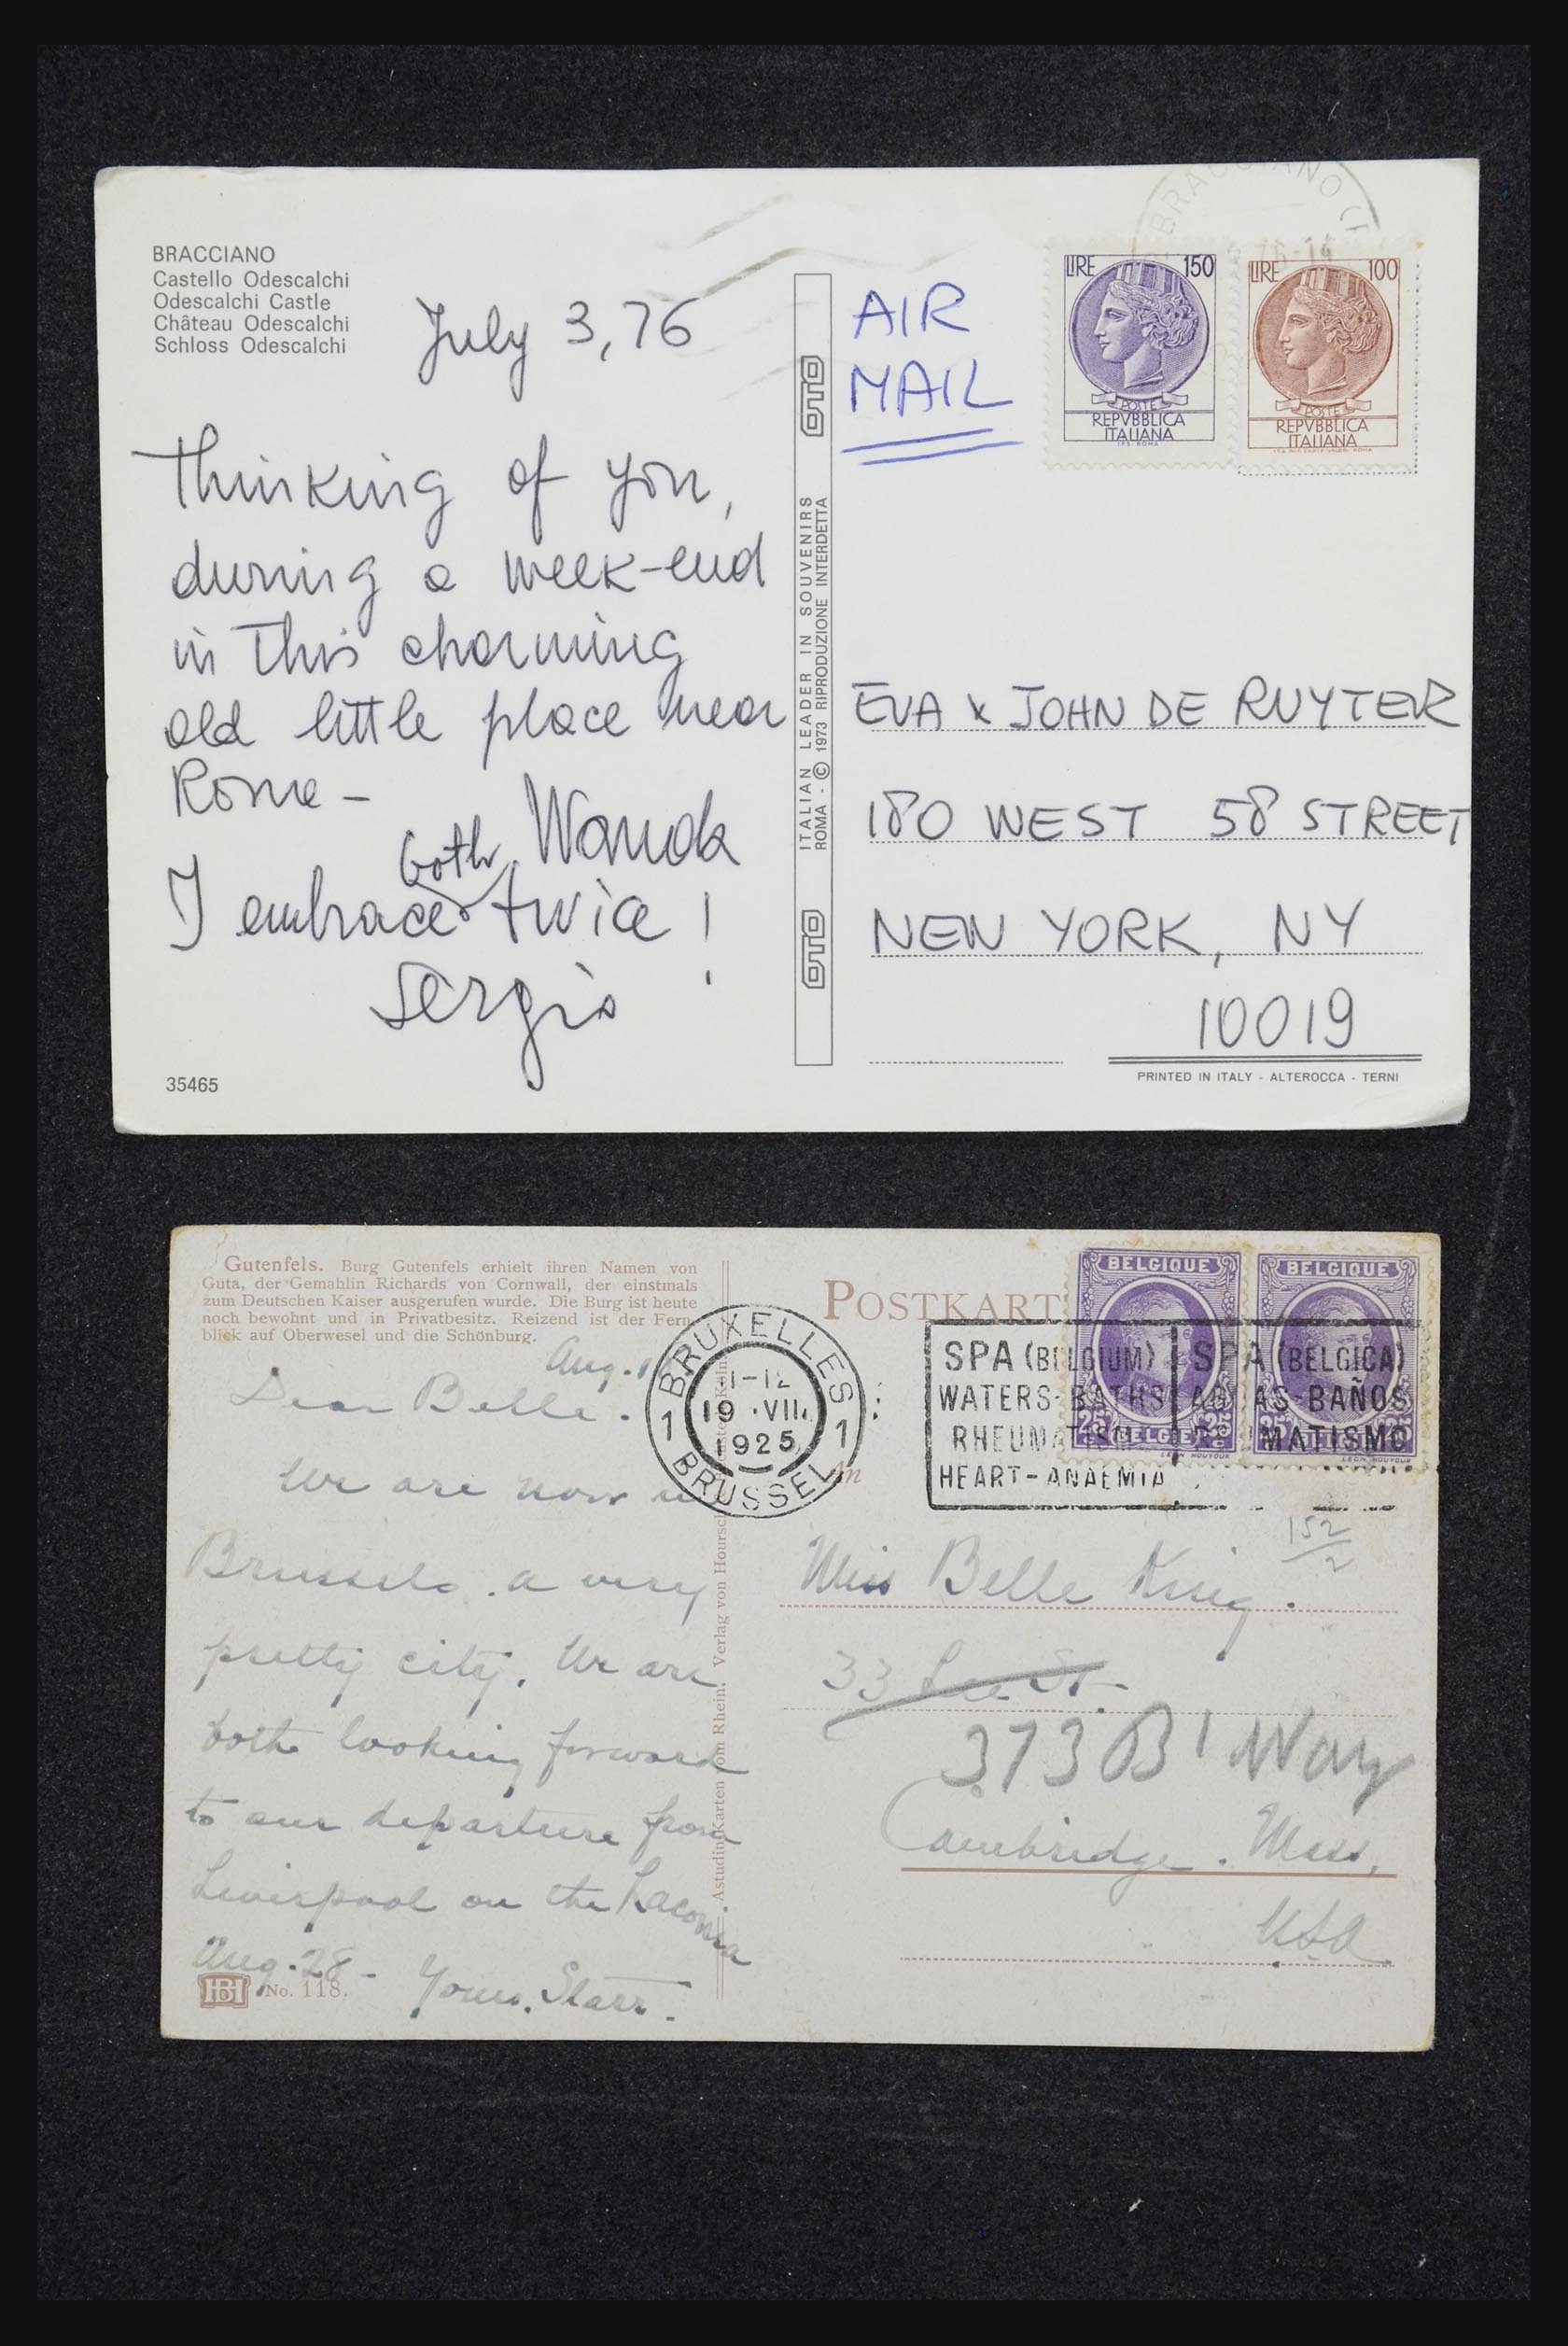 BRACCIANO
Castello Odescalchi
Odescalchi Castle
Château Odescalchi
Schloss Odescalchi
July 3, 76
Thinking of you,
during a week-end
in this charming
old little place near
Rome -
Wanda
both
I embrace twice!
Sergio
35465
ITALIAN LEADER IN SOUVENIRS
ROMA - © 1973 RIPRODUZIONE INTERDETTA
OTO
OTO
BRACCIANO
AIR
MAIL
LIRE 150
POSTE
REPVBBLICA
ITALIANA
LIRE 100
POSTE
REPVBBLICA
ITALIANA
EVA & JOHN DE RUYTER
180 WEST 58 STREET
NEW YORK, NY
10019
PRINTED IN ITALY - ALTEROCCA - TERNI
Gutenfels. Burg Gutenfels erhielt ihren Namen von
Guta, der Gemahlin Richards von Cornwall, der einstmals
zum Deutschen Kaiser ausgerufen wurde. Die Burg ist heute
noch bewohnt und in Privatbesitz. Reizend ist der Fern-
blick auf Oberwesel und die Schönburg.
Aug.
Dear Belle.
We are now in
Brussels. a very
pretty city. We are
both looking forward
to our departure from
Liverpool on the Laconia
Aug. 28 -
Yours, Starr.
HB No. 118.
Astudin Karten vom Rhein. Verlag von Hoursch
POSTKART
An
1 BRUXELLES 1
11-12
19 VIII
1925
BRUSSEL
SPA (BELGIUM)
WATERS-BATHS
RHEUMATISM
HEART-ANAEMIA
SPA (BELGICA)
AGUAS-BAÑOS
MATISMO
BELGIQUE
25 25
BELGIE
BELGIQUE
25 25
152/2
Miss Belle King.
33 Lee St.
373 B'Way
Cambridge. Mass.
USA.